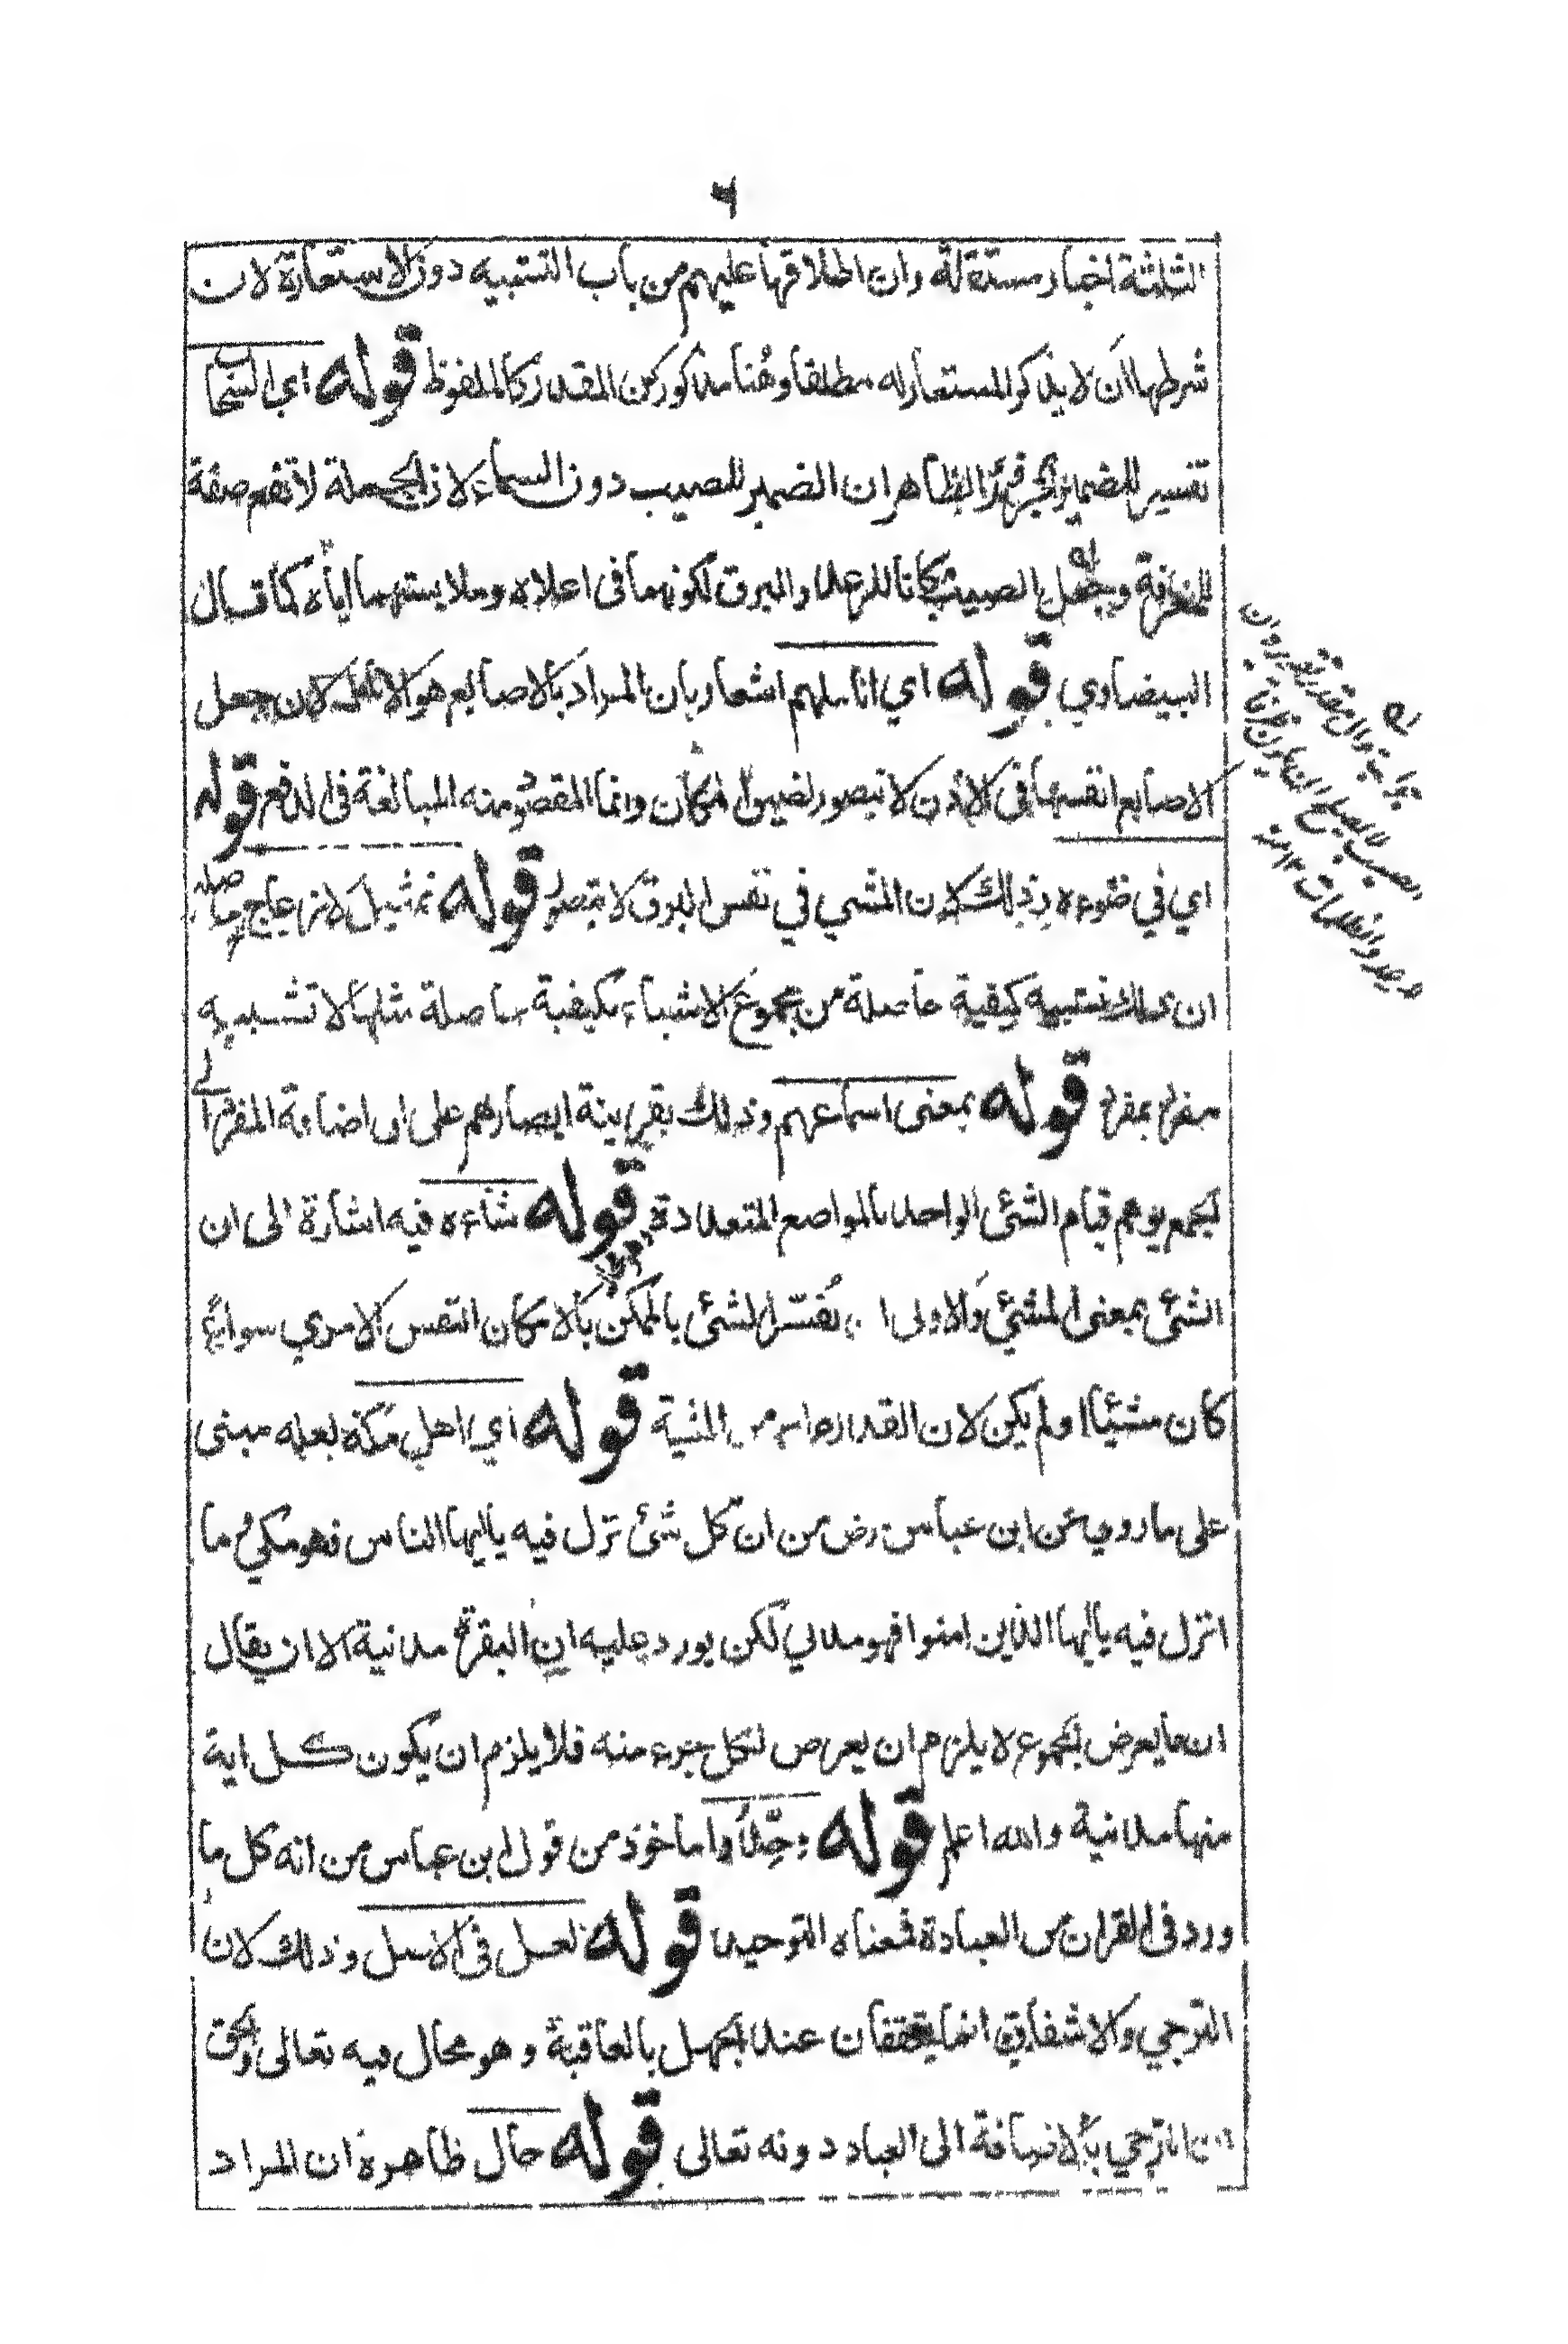 ٦
الثلثة اخبار مستقلة وان اطلاقها عليهم من باب التشبيه دون الاستعارة لان
شرطها ان لا يذكر المستعار له مطلقا وهُنا مذكور لكن المقدر كالملفوظ قوله اي السحاب
تفسير للضمير المجرور الظاهر ان الضمير للصيب دون السماء لان الجملة لا تقع صفة
للمعرفة وجعل الصيب مكانا للرعد والبرق لكونهما في اعلاه وملابستهما اياه كما قال
البيضاوي قوله اي اناملهم اشعار بان المراد بالاصابع هو الانامل لان جعل
الاصابع انفسها في الاذن لا يتصور لضيق المكان وانما المقصود منه المبالغة في الدفع قوله
اي في ضوءه وذلك لان المشي في نفس البرق لا يتصور قوله تمثيل لانزعاج ما حاصله
ان ذلك تشبيه كيفية حاصلة من مجموع الاشياء بكيفية حاصلة مثلها لا تشبيه
مفرد بمفرد قوله بمعنى اسماعهم وذلك بقرينة ابصارهم على ان اضافة المفرد الى
الجمع يوهم قيام الشئ الواحد بالمواضع المتعددة قوله شاءه فيه اشارة الى ان
الشئ بمعنى المشئ والاولى ان يُفسّر الشئ بالممكن بالامكان النفس الامري سواء
كان مشيّئا او لم يكن لان القدرة من المشية قوله اي اهل مكة لعله مبنى
على ما روي عن ابن عباس رض من ان كل شئ نزل فيه يا ايها الناس فهو مكي وما
انزل فيه يا ايها الذين امنوا فهو مدني لكن يورد عليه ان البقرة مدنية الا ان يقال
ان ما يعرض لمجموع لا يلزم ان يعرض لكل جزء منه فلا يلزم ان يكون كل اية
منها مدنية والله اعلم قوله وحّدوا ماخوذ من قول ابن عباس من انه كل ما
ورد في القران من العبادة فمعناه التوحيد قوله لعل في الاصل وذلك لان
الترجي والاشفاق انما يتحققان عند الجهل بالعاقبة وهو محال فيه تعالى والحق
ان الترجي بالاضافة الى العباد دونه تعالى قوله حال ظاهره ان المراد